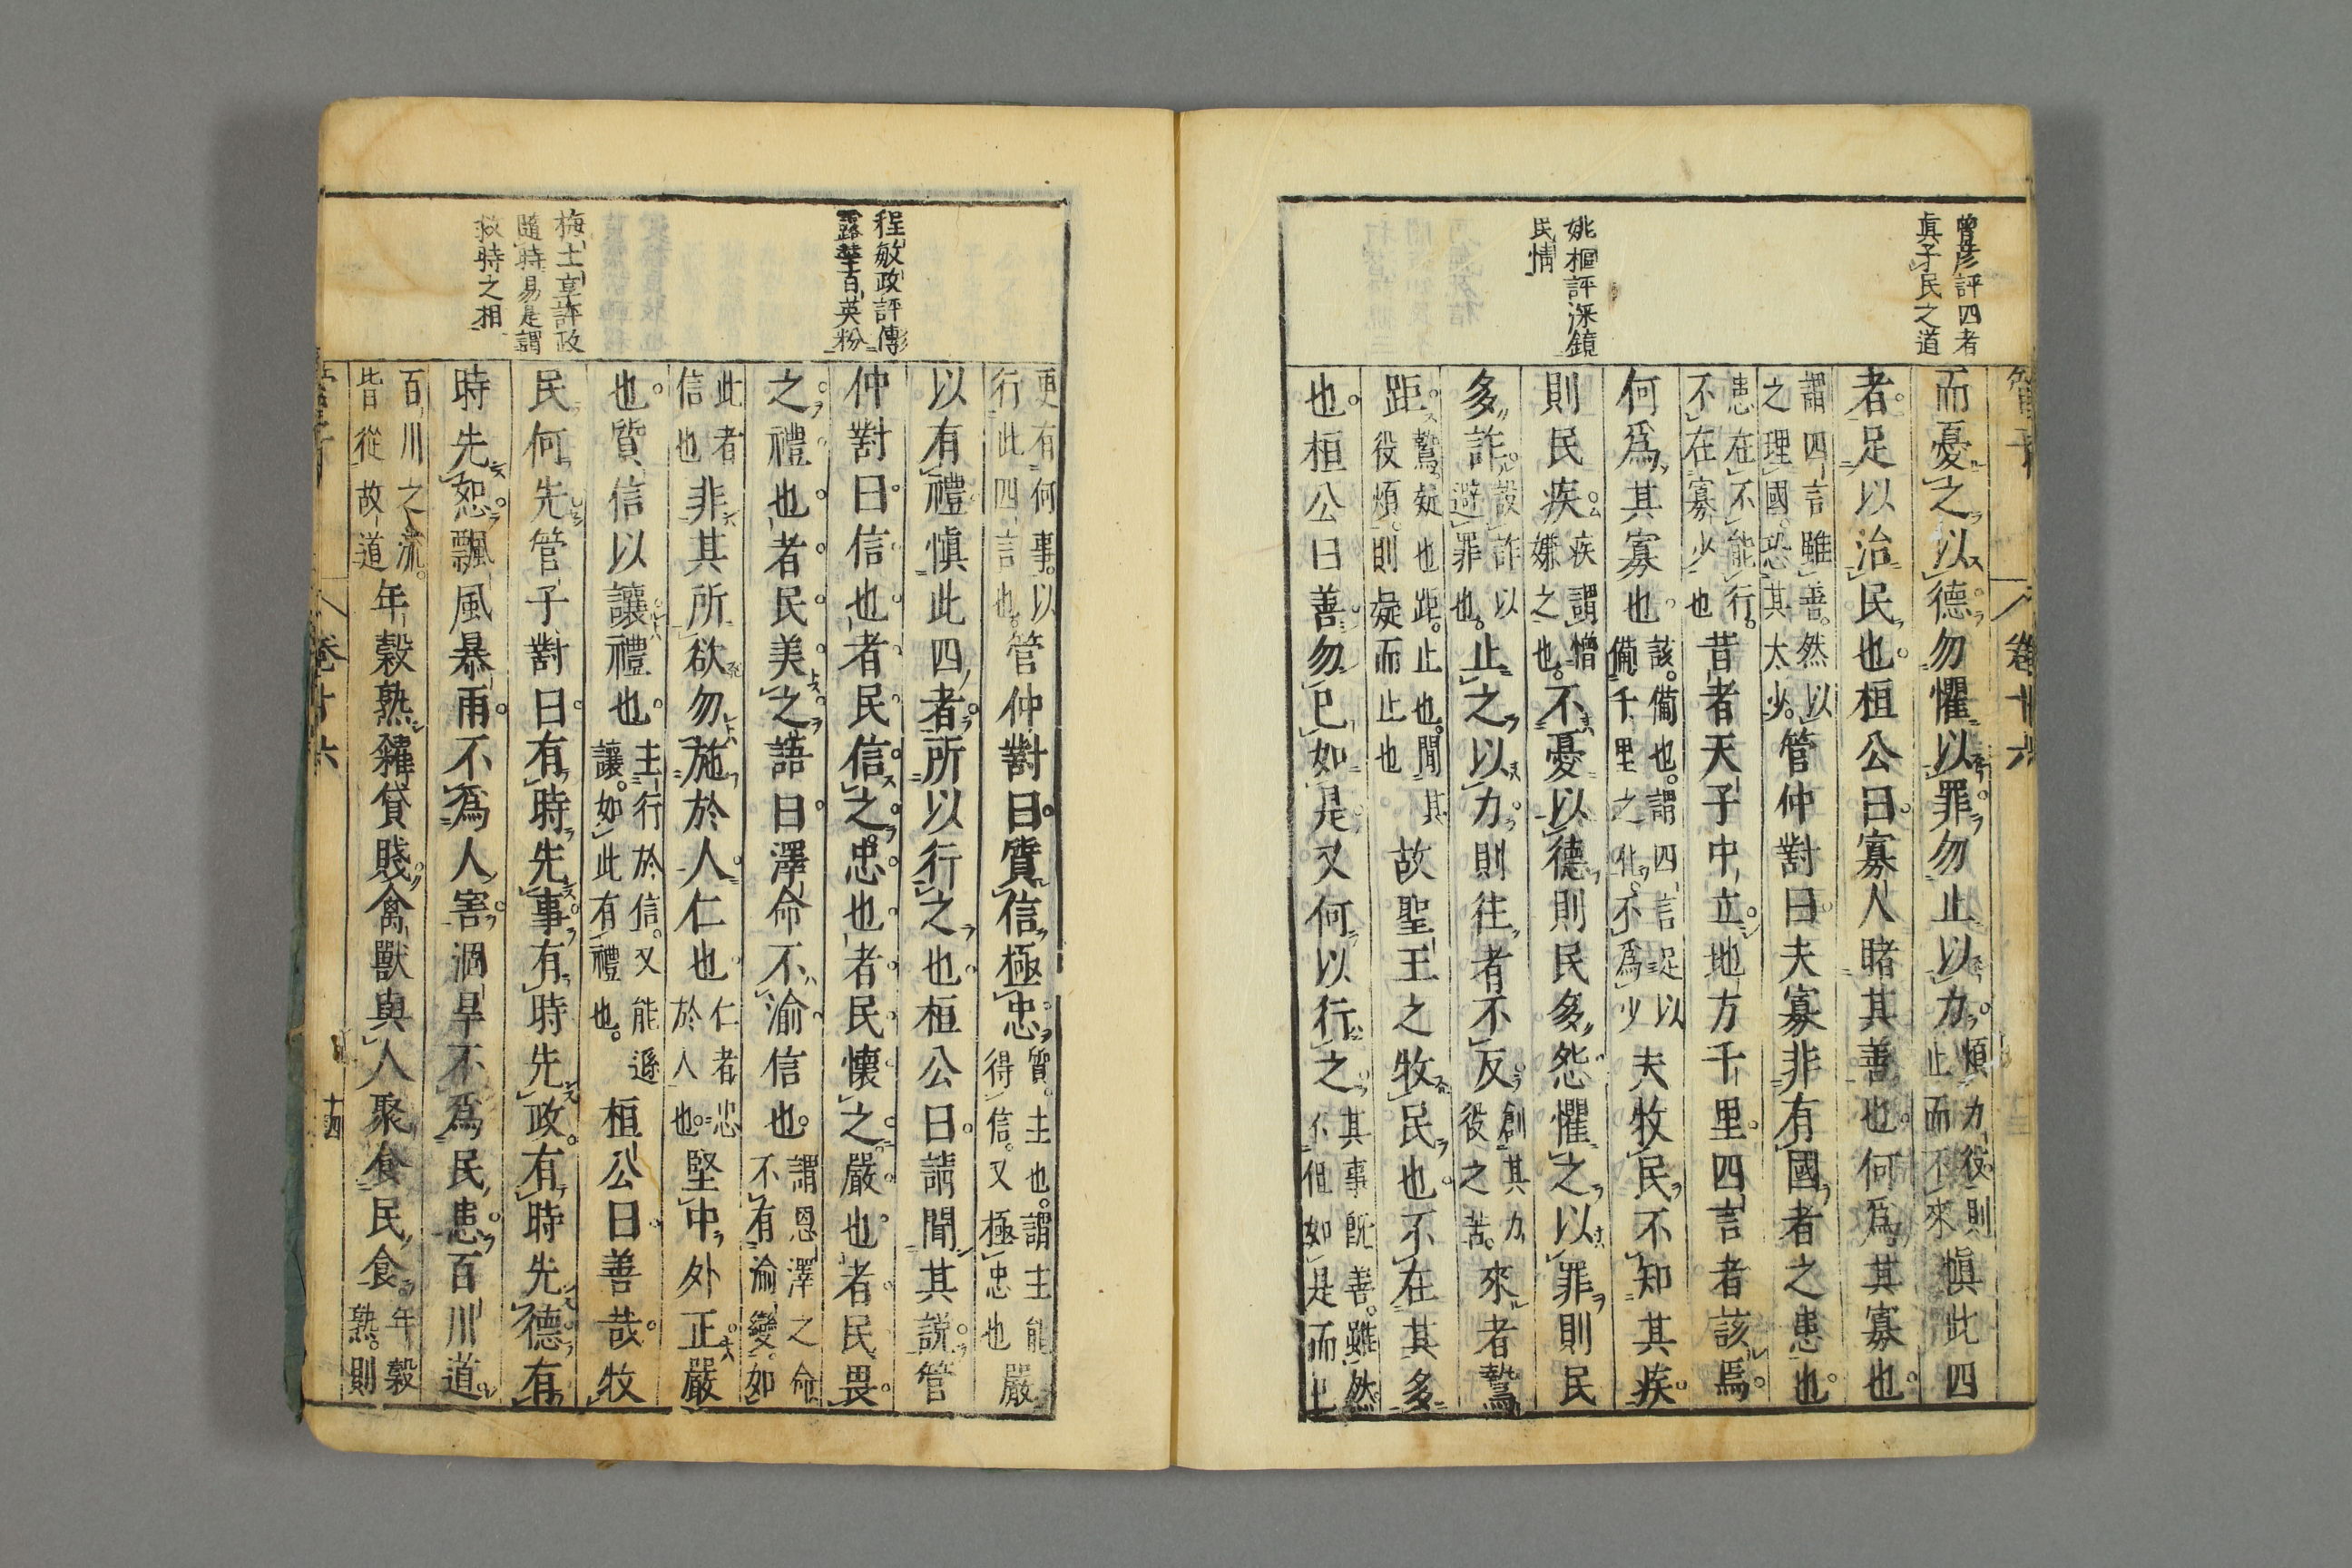 曾彥評四者
眞子民之道
姚樞評深鏡
民情
而憂之以德勿懼以罪勿止以力煩力役則止而不來愼此四
者足以治民也桓公曰寡人睹其善也何爲其寡也
謂四言雖善然以之理國恐其太少管仲對曰夫寡非有國者之患也
患在在不能行不在寡少也昔者天子中立地方千里四言者該焉
何爲其寡也該備也謂四言足以備千里之化不爲少夫牧民不知其疾
則民疾疾謂憎嫌之也不憂以德則民多怨懼之以罪則民
多詐設詐以避罪也止之以力則往者不反創其力役之苦來者鷙
距鷙疑也距止也聞其役煩則疑而止也故聖王之牧民也不在其多
也桓公曰善勿已如是又何以行之其事旣善雖然不但如是而止
程敏政評傳
露華百英粉
梅士享評政
隨時易是謂
救時之相
更有何事以行此四言也管仲對曰質信極忠質主也謂主能得信又極忠也嚴
以有禮愼此四者所以行之也桓公曰請聞其説管
仲對曰信也者民信之忠也者民懷之嚴也者民畏
之禮也者民美之語曰澤命不渝信也謂恩澤之命不有渝變如
此者信也非其所欲勿施於人仁也仁者忠於人也堅中外正嚴
也質信以讓禮也主行於信又能遜讓如此有禮也桓公曰善哉牧
民何先管子對曰有時先事有時先政有時先德有
時先恕飄風暴雨不爲人害涸旱不爲民患百川道
百川之流皆從故道年穀熟糴貸賤禽獸與人聚食民食年穀熟則
管子
卷十六
卷十六
十四